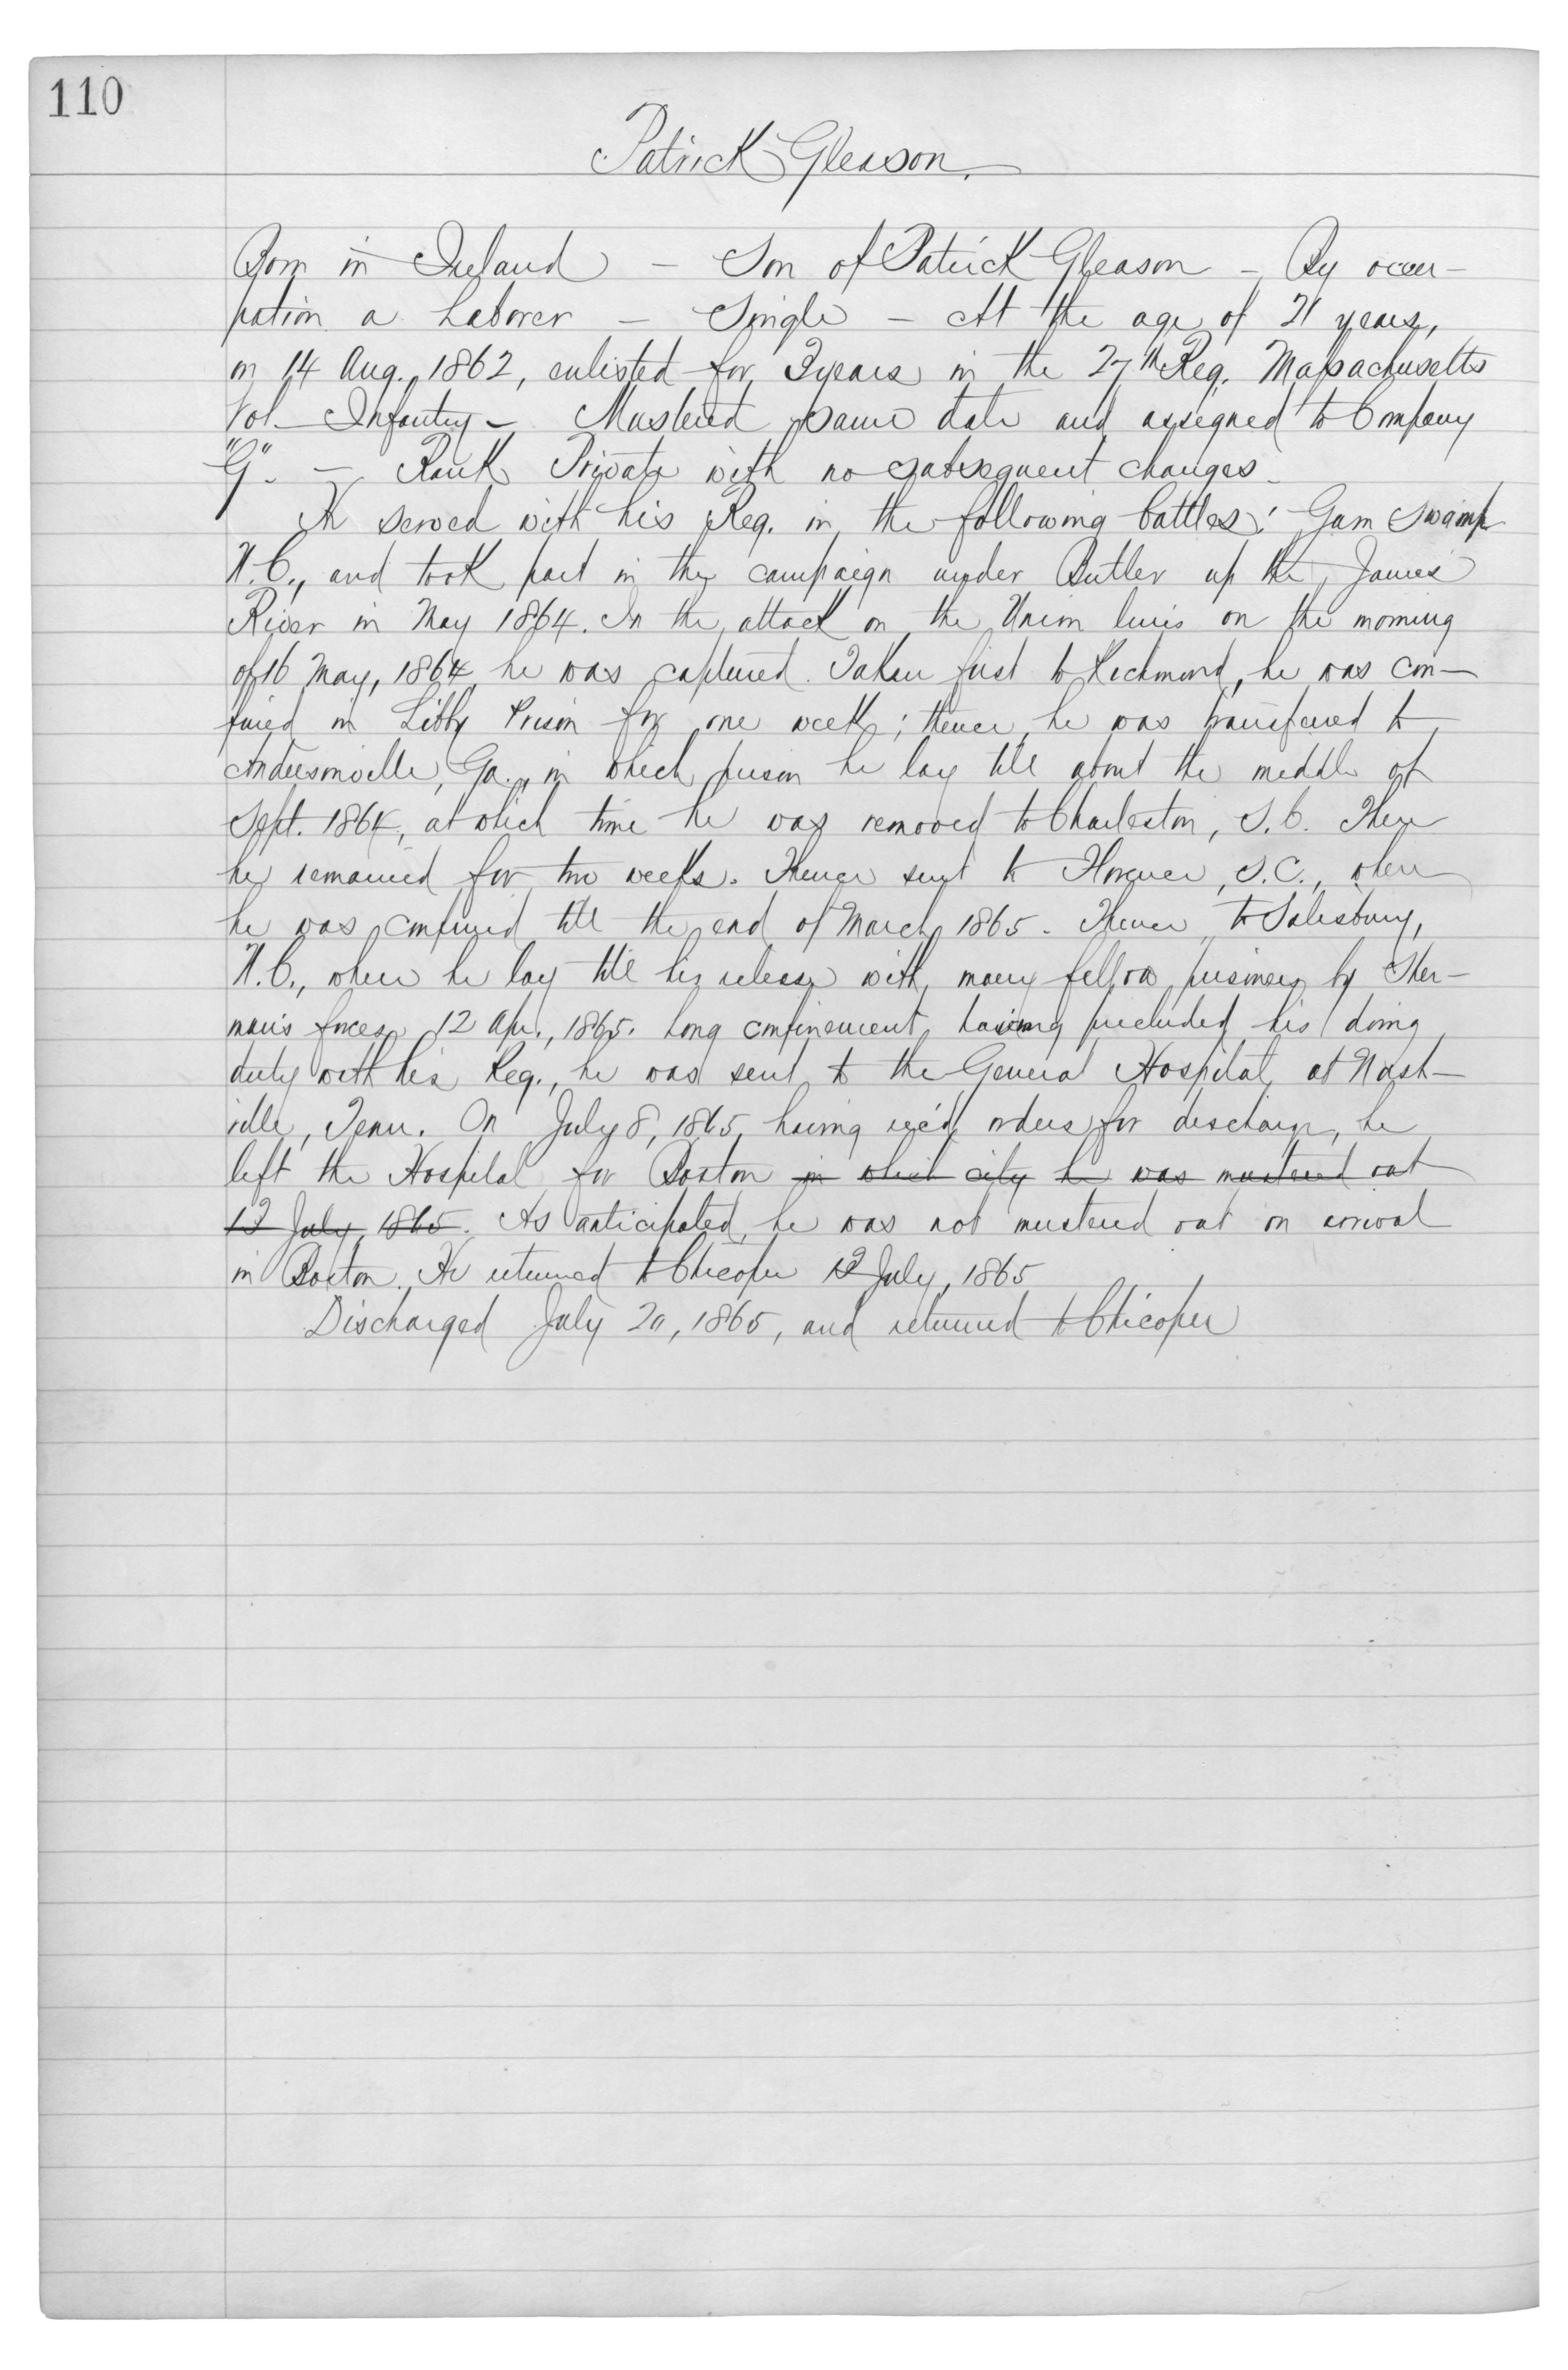 110
Patrick Gleason.
Born in Ireland – Son of Patrick Gleason – By occu-
pation a Laborer – Single – At the age of 21 years,
on 14 Aug., 1862, enlisted for 3 years in the 27th Reg. Massachusetts
Vol. Infantry – Mustered same date and assigned to Company
"G". – Rank Private with no subsequent changes.
He served with his Reg. in the following battles: Gum Swamp
N.C., and took part in the campaign under Butler up the James
River in May 1864. In the attack on the Union lines on the morning
of 16 May, 1864 he was captured. Taken first to Richmond, he was con-
fined in Libby Prison for one week; thence he was transferred to
Andersonville, Ga., in which prison he lay till about the middle of
Sept. 1864, at which time he was removed to Charleston, S.C. There
he remained for two weeks. Thence sent to Florence, S.C., where
he was confined till the end of March 1865. Thence to Salisbury,
N.C., where he lay till his release with many fellow prisoners by Sher-
man's forces 12 Apr., 1865. Long confinement having precluded his doing
duty with his Reg., he was sent to the General Hospital at Nash-
ville, Tenn. On July 8, 1865, having rec'd orders for discharge, he
left the Hospital for Boston in which city he was mustered out
12 July, 1865. As anticipated, he was not mustered out on arrival
in Boston. He returned to Chicopee 12 July, 1865
Discharged July 20, 1865, and returned to Chicopee